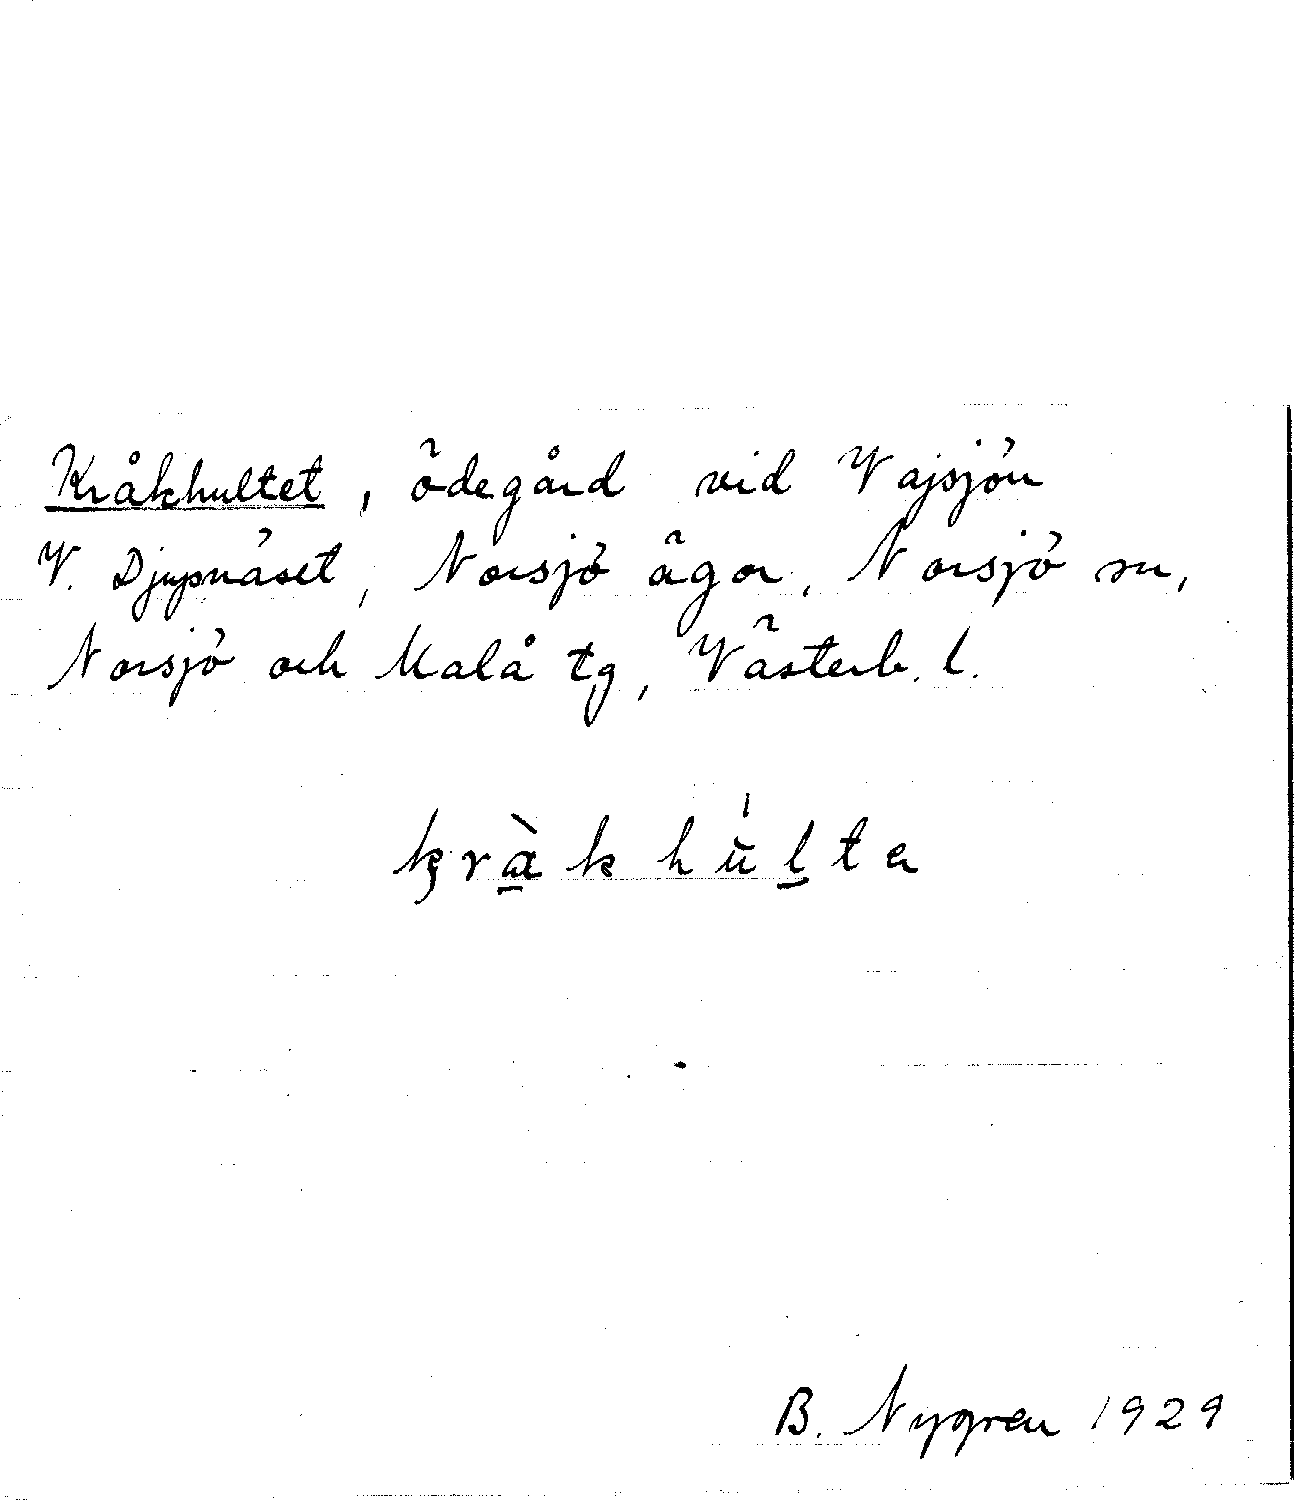 Kråkhultet, ödegård vid Vajsjön
V. Djupnäset, Norsjö ägor, Norsjö sn,
Norsjö och Malå tg, Västerb. l.
kràkhúlta
B. Nygren 1929